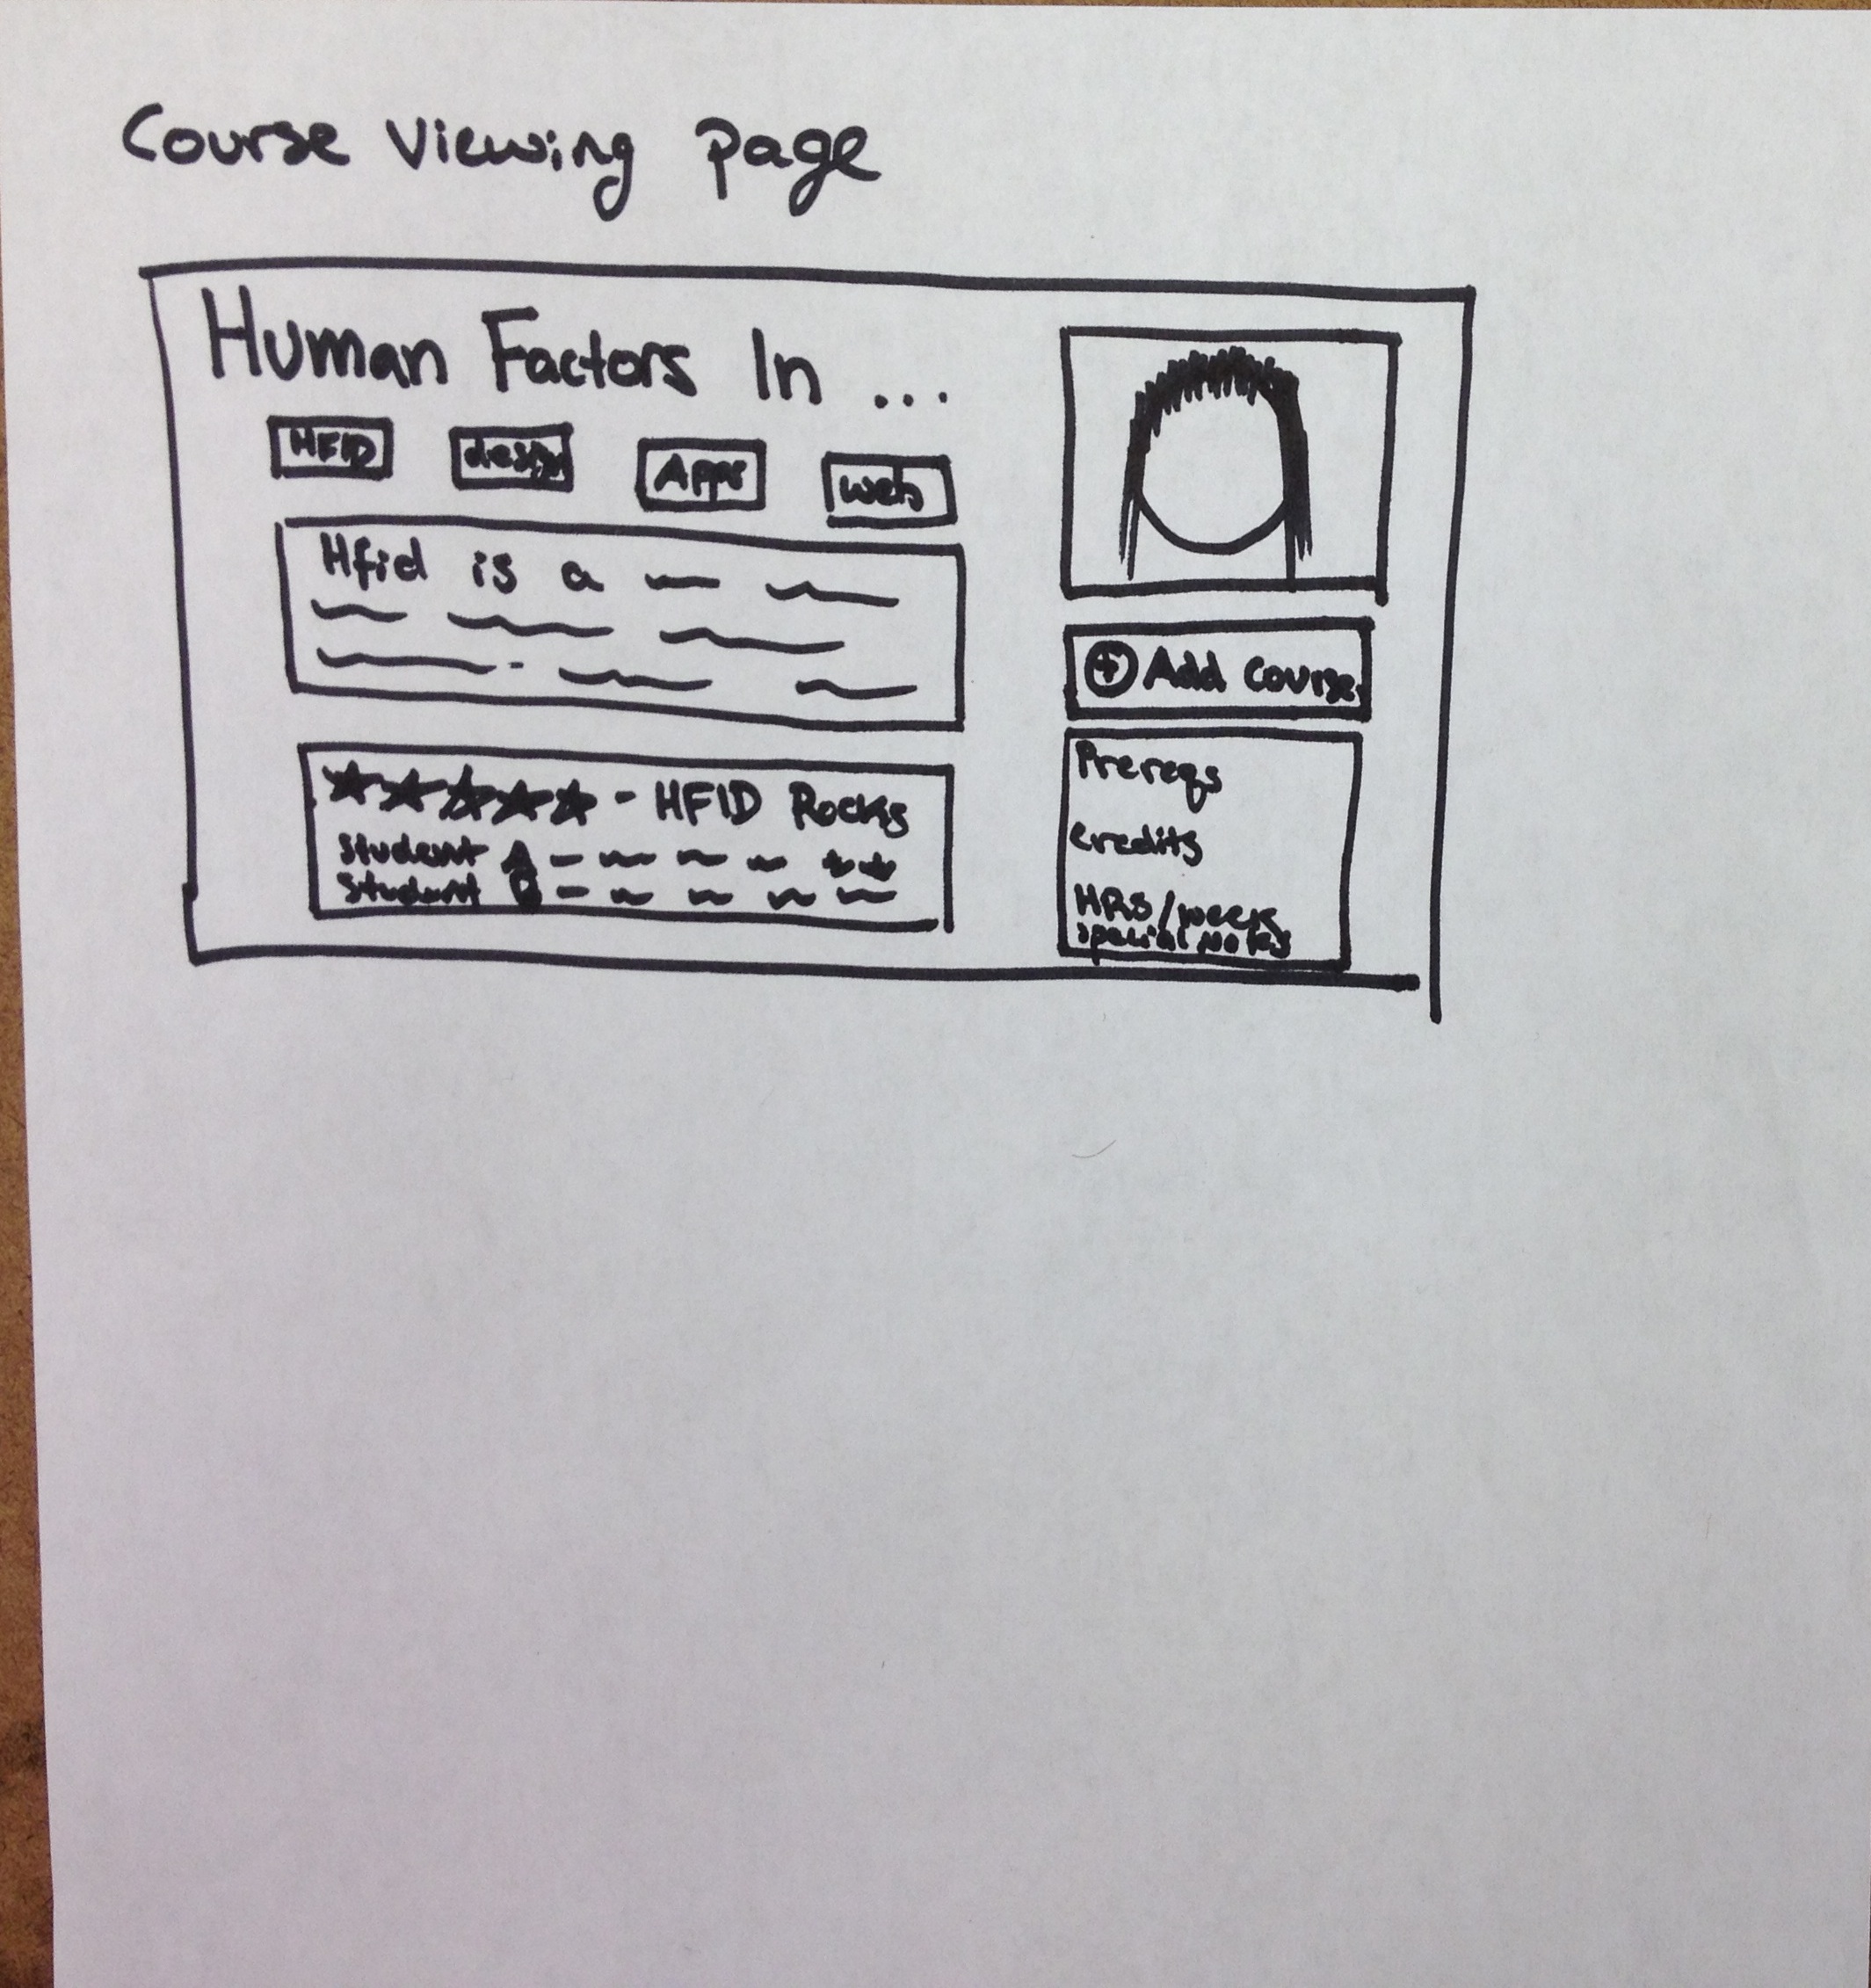 Course Viewing page
Human Factors In ...
HFID design Apps web
Hfid is a
- HFID Rocks
Student A -
Student B -
+ Add course
Prereqs
credits
HRS/week
special notes